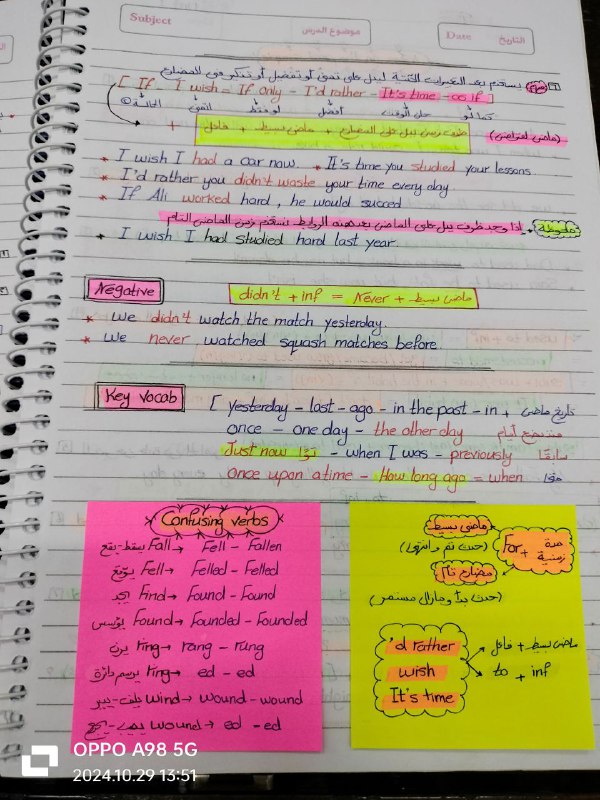 Subject موضوع الدرس Date التاريخ
هام يستخدم بعد التعبيرات الآتية ليدل على تمنى أو تفضيل أو تذكر فى المضارع
[ If - I wish = If only - I'd rather - It's time - as if ]
كما لو حان الوقت أفضل لو فقط أتمنى الحالة
(ماضى افتراضى) ظرف زمن يدل على المضارع + ماضى بسيط + فاعل +
* I wish I had a car now. * It's time you studied your lessons
* I'd rather you didn't waste your time every day
* If Ali worked hard, he would succed
ملحوظة إذا وجد ظرف يدل على الماضى بعد هذه الروابط نستخدم زمن الماضى التام
* I wish I had studied hard last year.
Negative didn't + inf = Never + ماضى بسيط
* we didn't watch the match yesterday.
* we never watched squash matches before
Key Vocab [ yesterday - last - ago - in the past - in + تاريخ ماضى
once - one day - the other day منذ بضع أيام
Just now تواً - when I was - previously سابقاً
once upon a time - How long ago = when
Confusing verbs
يسقط-يقع Fall → Fell - Fallen
يوقع Fell → Felled - Felled
يجد Find → Found - Found
يؤسس Found → Founded - Founded
يرن ring → rang - rung
يرسم دائرة ring → ed - ed
wind → wound - wound
wound → ed - ed
ماضى بسيط
(حدث تم وانتهى)
For + مدة زمنية
مضارع تام
(حدث بدأ ومازال مستمر)
'd rather
wish
It's time
ماضى بسيط + فاعل
to + inf
OPPO A98 5G
2024.10.29 13:51